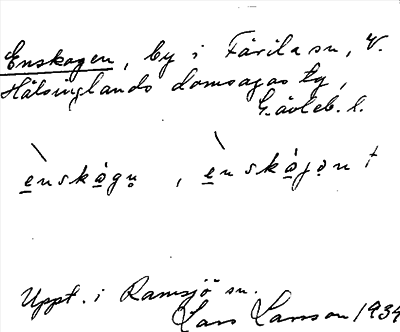 Enskogen, by i Färila sn, V.
Hälsinglands domsagas tg,
Gävleb. l.
ènskògṇ, ènskògən †
Uppt. i Ramsjö sn.
Lars Larsson 1934